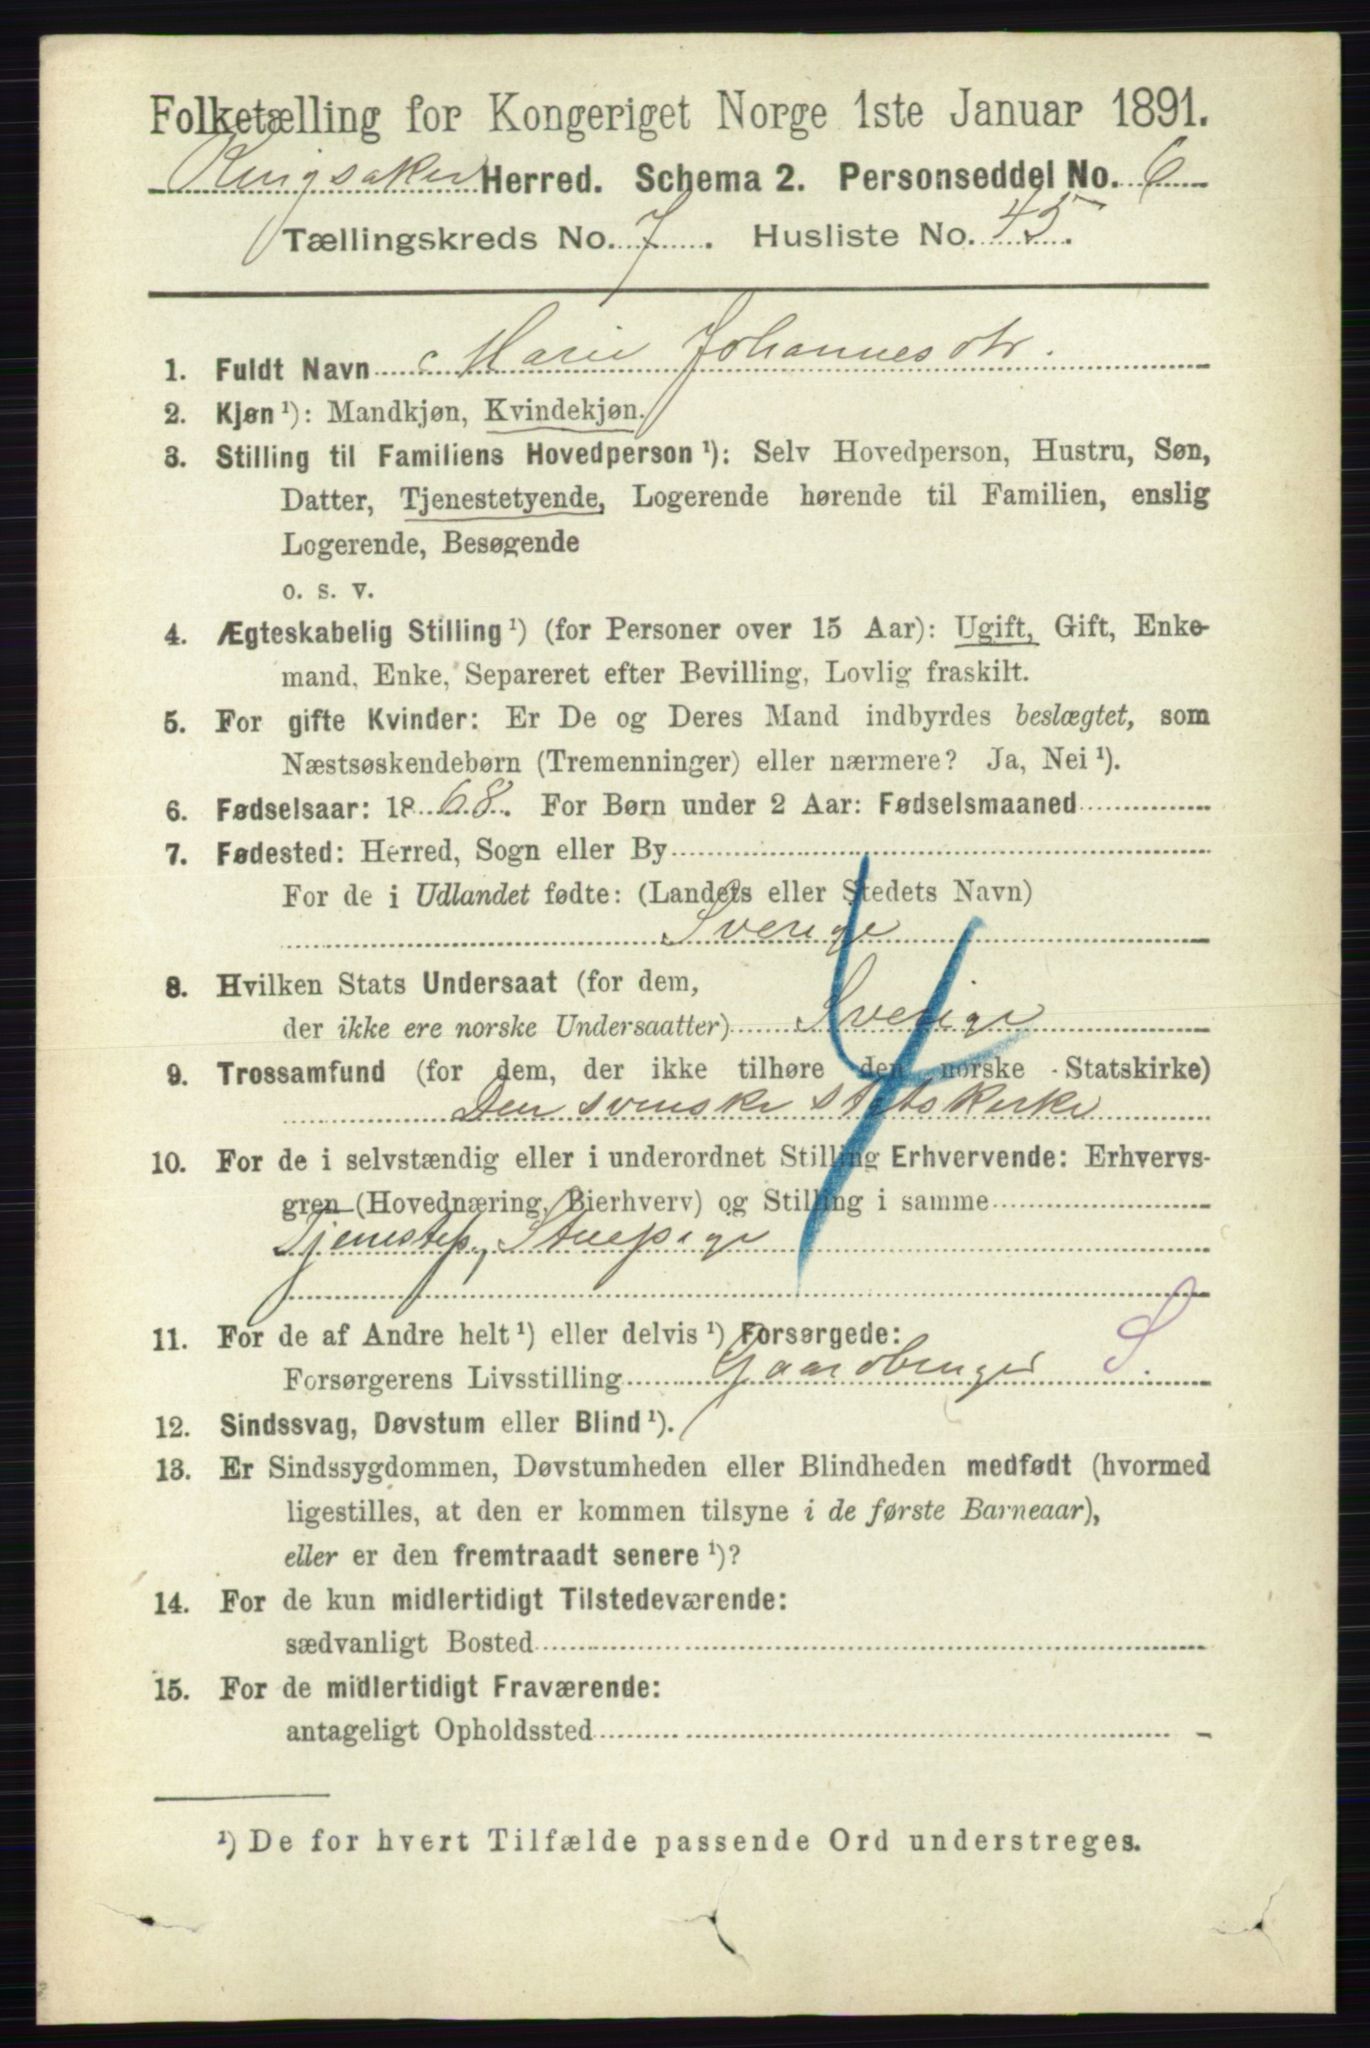 Folketælling for Kongeriget Norge 1ste Januar 1891.
Ringsaker Herred. Schema 2. Personseddel No. 6
Tællingskreds No. 7. Husliste No. 45.
1. Fuldt Navn Marie Johannesdtr.
2. Kjøn ¹): Mandkjøn, Kvindekjøn.
3. Stilling til Familiens Hovedperson ¹): Selv Hovedperson, Hustru, Søn,
Datter, Tjenestetyende, Logerende hørende til Familien, enslig
Logerende, Besøgende
o. s. v.
4. Ægteskabelig Stilling ¹) (for Personer over 15 Aar): Ugift, Gift, Enke-
mand, Enke, Separeret efter Bevilling, Lovlig fraskilt.
5. For gifte Kvinder: Er De og Deres Mand indbyrdes beslægtet, som
Næstsøskendebørn (Tremenninger) eller nærmere? Ja, Nei ¹).
6. Fødselsaar: 1868. For Børn under 2 Aar: Fødselsmaaned
7. Fødested: Herred, Sogn eller By
For de i Udlandet fødte: (Landets eller Stedets Navn)
Sverige
8. Hvilken Stats Undersaat (for dem,
der ikke ere norske Undersaatter) Sverige
9. Trossamfund (for dem, der ikke tilhøre den norske Statskirke)
Den svenske Statskirke
4
10. For de i selvstændig eller i underordnet Stilling Erhvervende: Erhvervs-
gren (Hovednæring, Bierhverv) og Stilling i samme
Tjenestep, Stuepige
11. For de af Andre helt ¹) eller delvis ¹) Forsørgede: S.
Forsørgerens Livsstilling Gaardbruger
12. Sindssvag, Døvstum eller Blind ¹).
13. Er Sindssygdommen, Døvstumheden eller Blindheden medfødt (hvormed
ligestilles, at den er kommen tilsyne i de første Barneaar),
eller er den fremtraadt senere ¹)?
14. For de kun midlertidigt Tilstedeværende:
sædvanligt Bosted
15. For de midlertidigt Fraværende:
antageligt Opholdssted
¹) De for hvert Tilfælde passende Ord understreges.